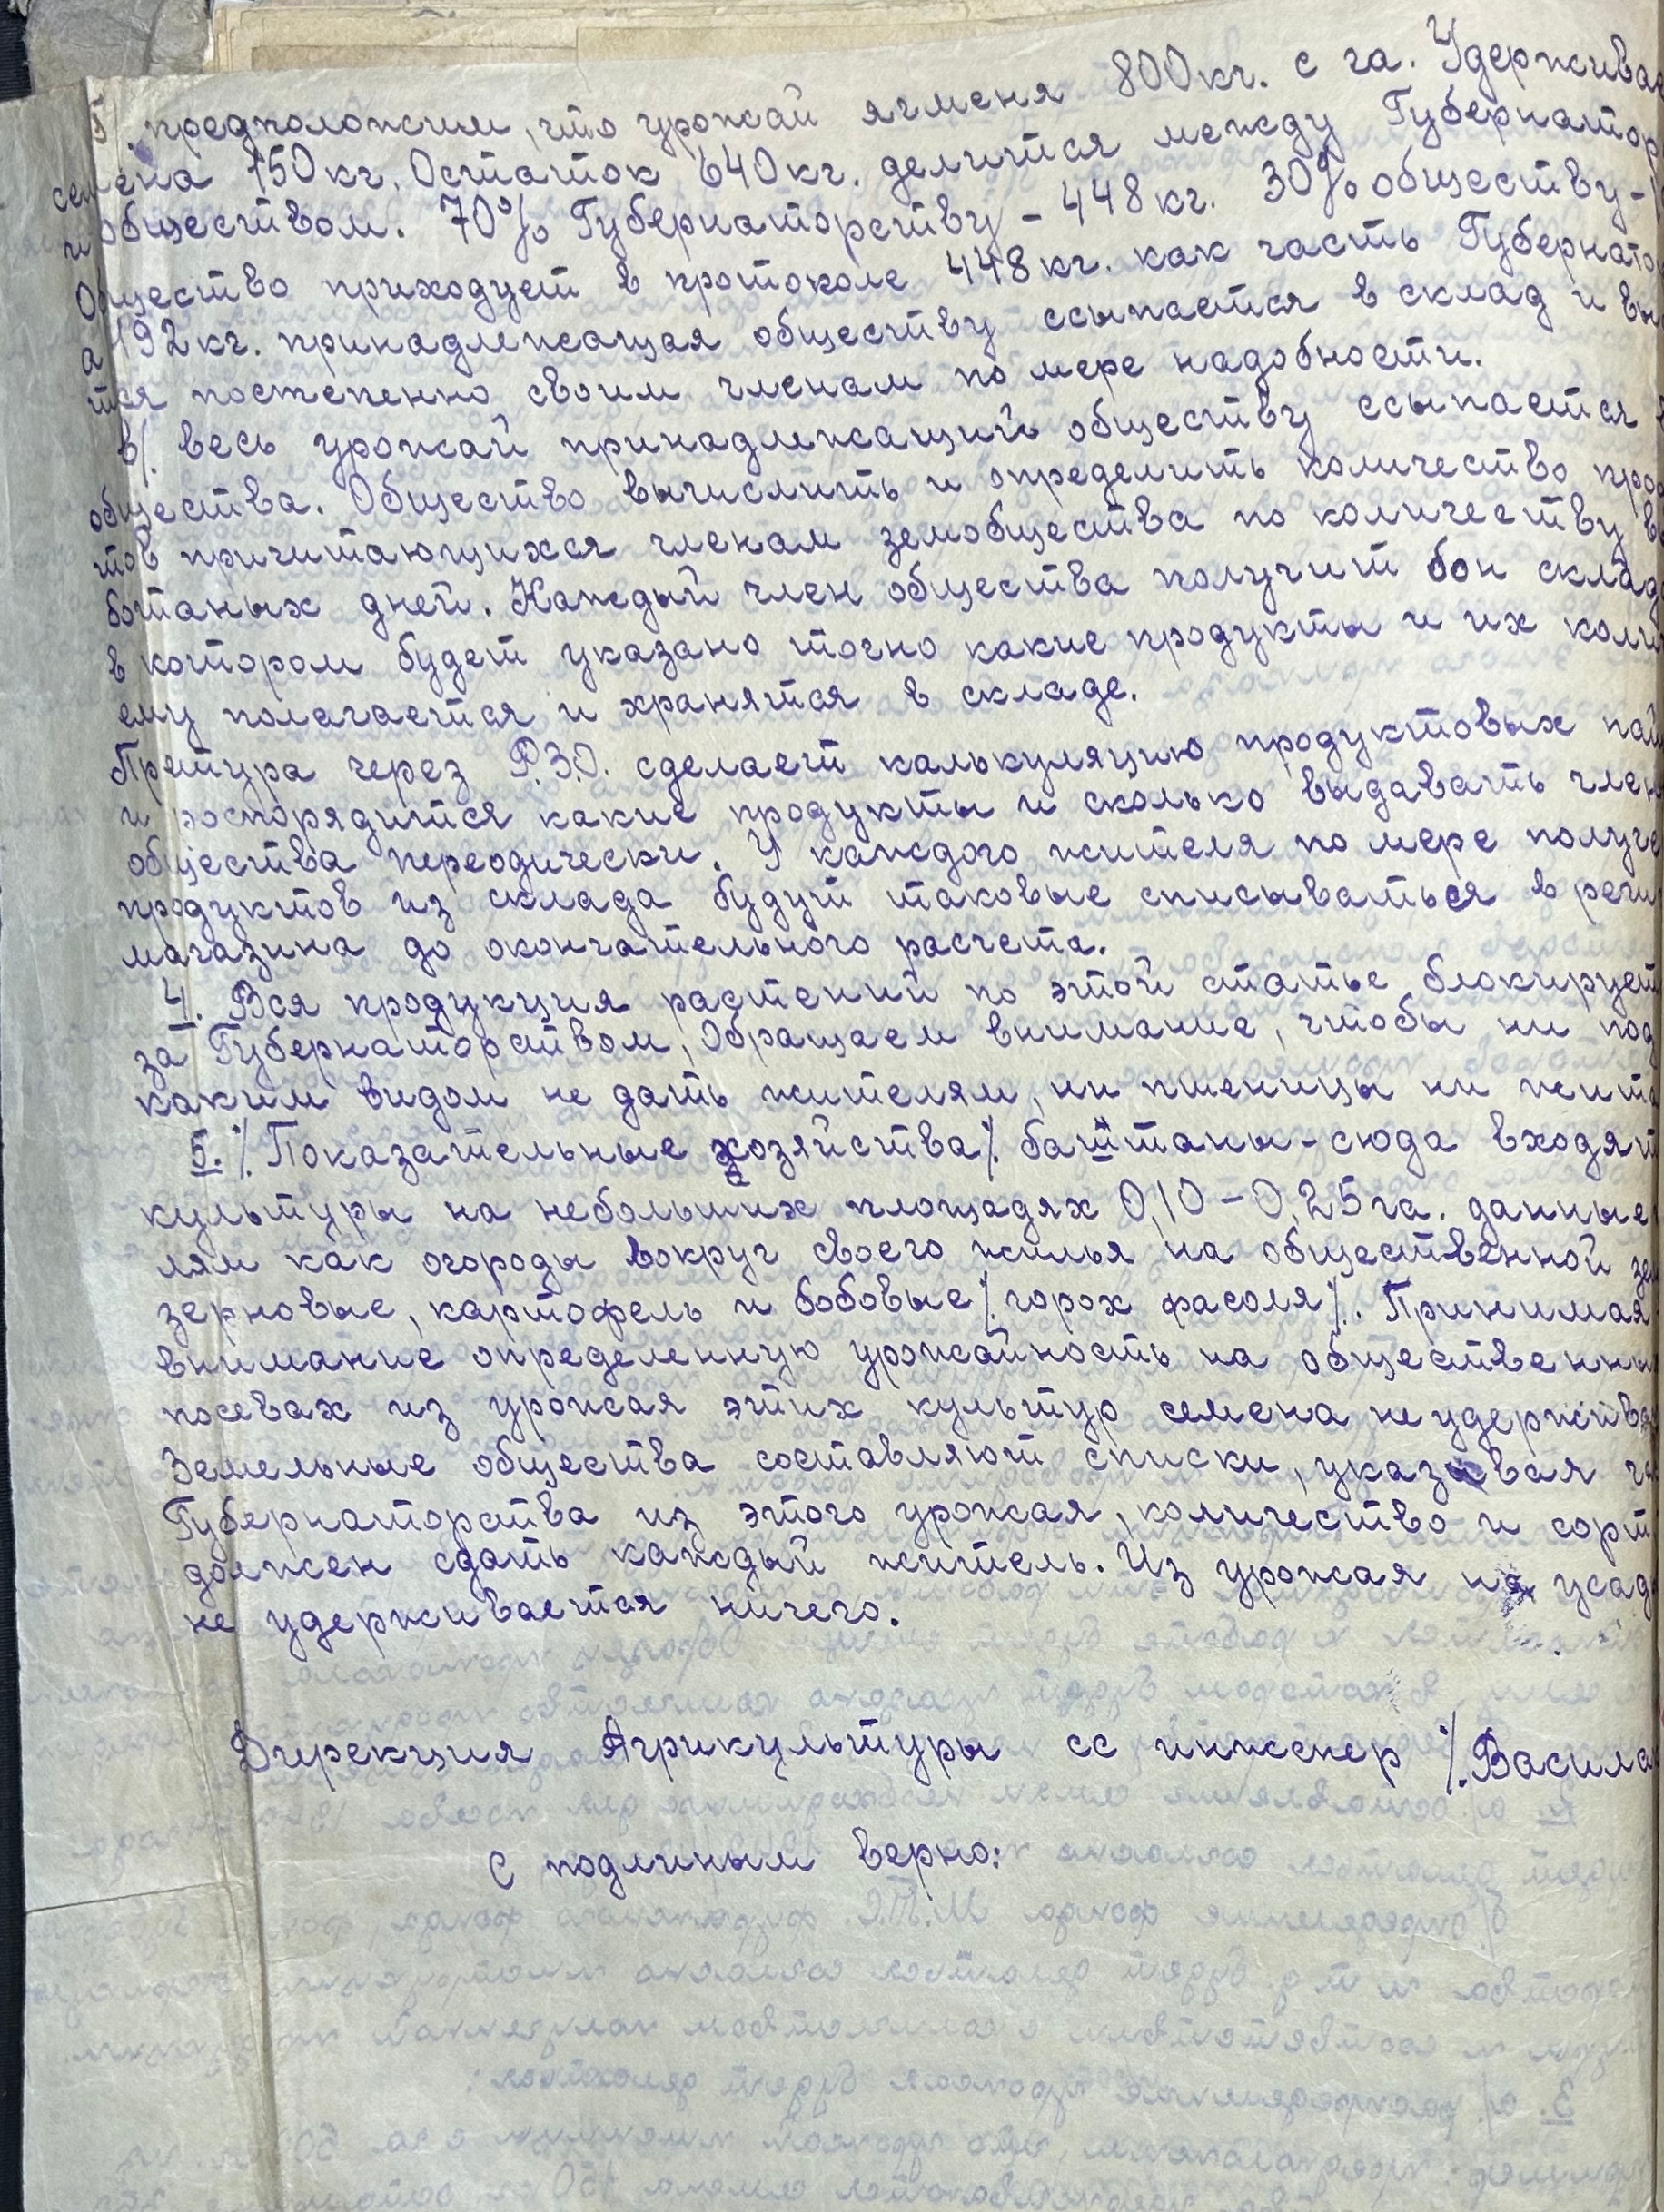 б/. предположим, что урожай ячменя 800кг. с га. Удержива
семена 150кг. Остаток 640кг. делится между Губернатор
и обществом. 70% Губернаторству - 448кг. 30% обществу -
Общество приходует в протоколе 448кг. как часть Губернато
а 192кг. принадлежащая обществу ссыпается в склад и вы
тся постепенно своим членам по мере надобности.
в/. весь урожай принадлежащий обществу ссыпается
общества. Общество вычислить и определить количество прод
тов причитающихся членам земобщества по количеству в
ботаных дней. Каждый член общества получит бон склад
в котором будет указано точно какие продукты и их коли
ему полагается и хранятся в складе.
Претура через Р.З.О. сделает калькуляцию продуктовых пай
и роспорядится какие продукты и сколько выдавать член
общества переодически. У каждого жителя по мере получе
продуктов из склада будут таковые списываться в реги
магазина до окончательного расчета.
4. Вся продукция растений по этой статье блокирует
за Губернаторством, Обращаем внимание, чтобы ни под
каким видом не дать жителям, ни пшеницы ни жита
5. % Показательные хозяйства % баштаны - сюда входят
культуры на небольших площадях 0,10 - 0,25 га. данные
лям как огороды вокруг своего жилья на общественной зе
зерновые, картофель и бобовые % горох фасоля %. Принимая
внимание определенную урожайность на общественны
посевах из урожая этих культур семена не удержива
Земельные общества составляют списки, указывая ча
Губернаторства из этого урожая, количество и сорт
должен сдать каждый житель. Из урожая на усад
не удерживается ничего.
Дирекция Агрикультуры сс инженер % Василa
С подлиным верно: